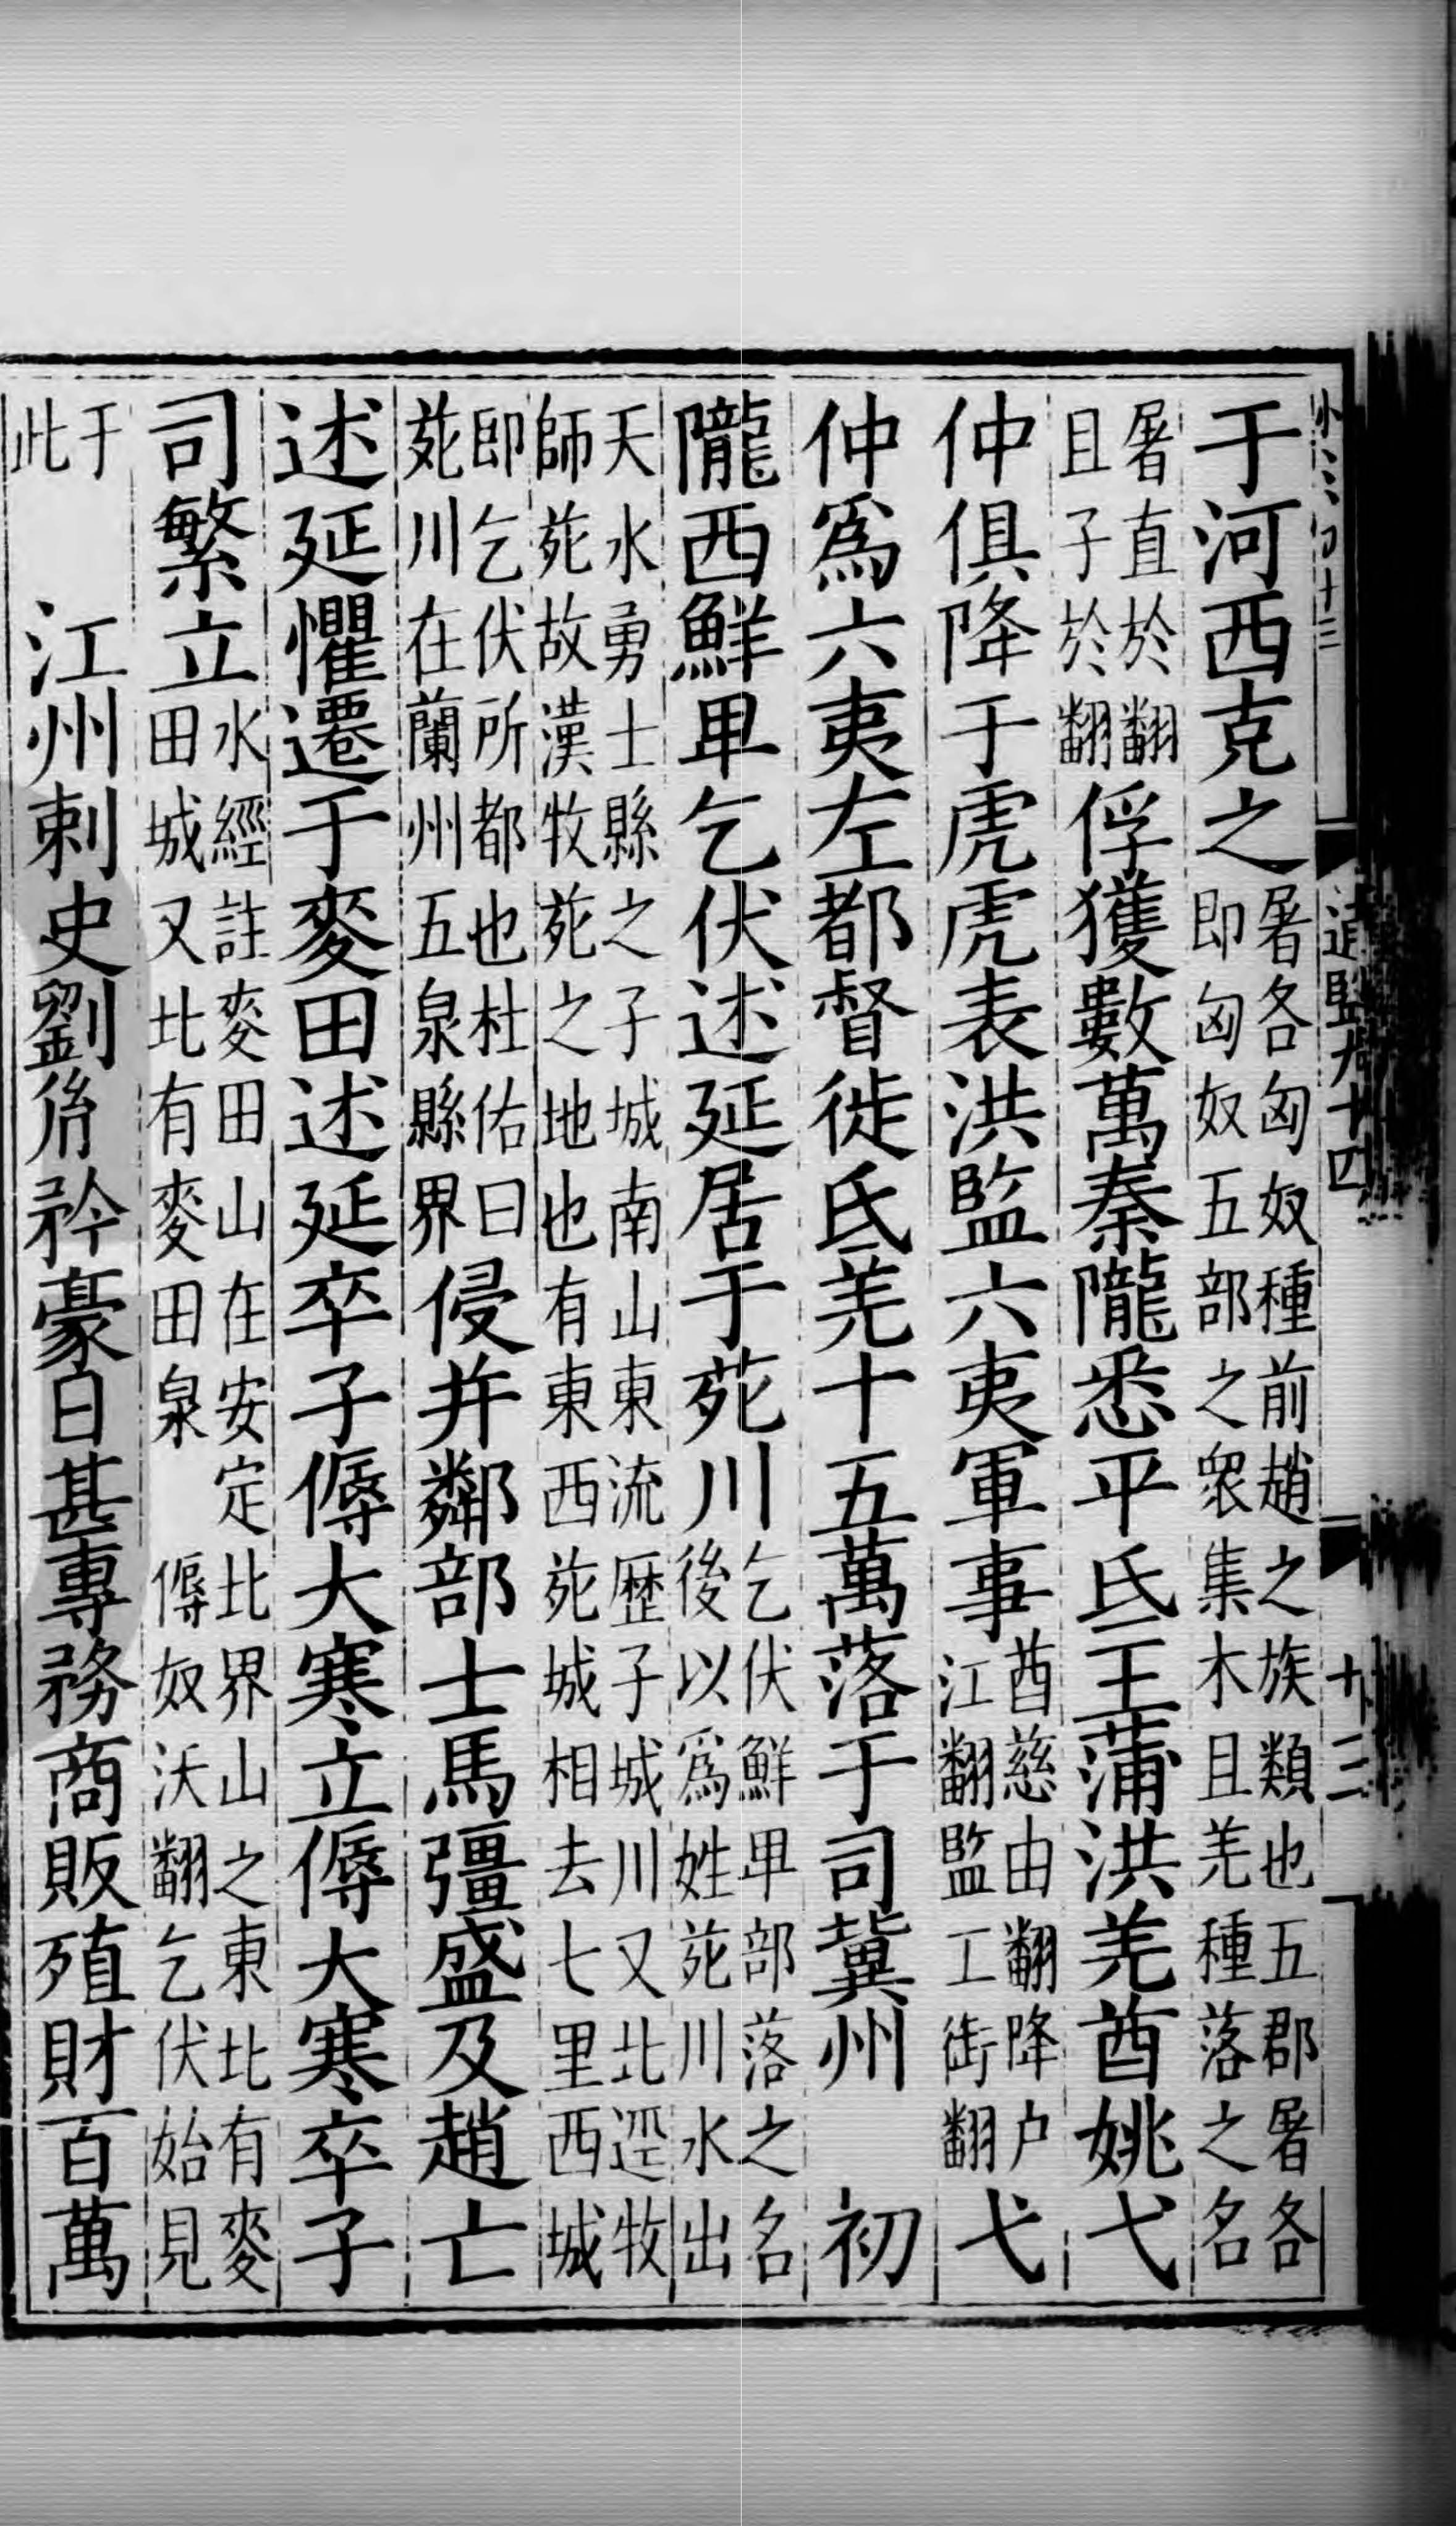 于河西克之屠各匈奴種前趙之族類也五郡屠各即匈奴五部之衆集木且羌種落之名
屠直於翻且子於翻俘獲數萬秦隴悉平氐王蒲洪羌酋姚弋
仲俱降于虎虎表洪監六夷軍事酋慈由翻降户江翻監工衘翻弋
仲爲六夷左都督徙氐羌十五萬落于司冀州　初
隴西鮮卑乞伏述延居于苑川乞伏鮮卑部落之名後以爲姓苑川水出
天水勇士縣之子城南山東流歷子城川又北逕牧師苑故漢牧苑之地也有東西苑城相去七里西城
即乞伏所都也杜佑曰苑川在蘭州五泉縣界侵并鄰部士馬彊盛及趙亡
述延懼遷于麥田述延卒子傉大寒立傉大寒卒子
司繁立水經註麥田山在安定北界山之東北有麥田城又北有麥田泉傉奴沃翻乞伏始見
于此　江州刺史劉胤矜豪日甚專務商販殖財百萬
通鑑九十四
十三